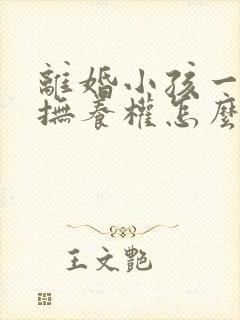 離婚小孩一
撫養權怎麼
王文艷